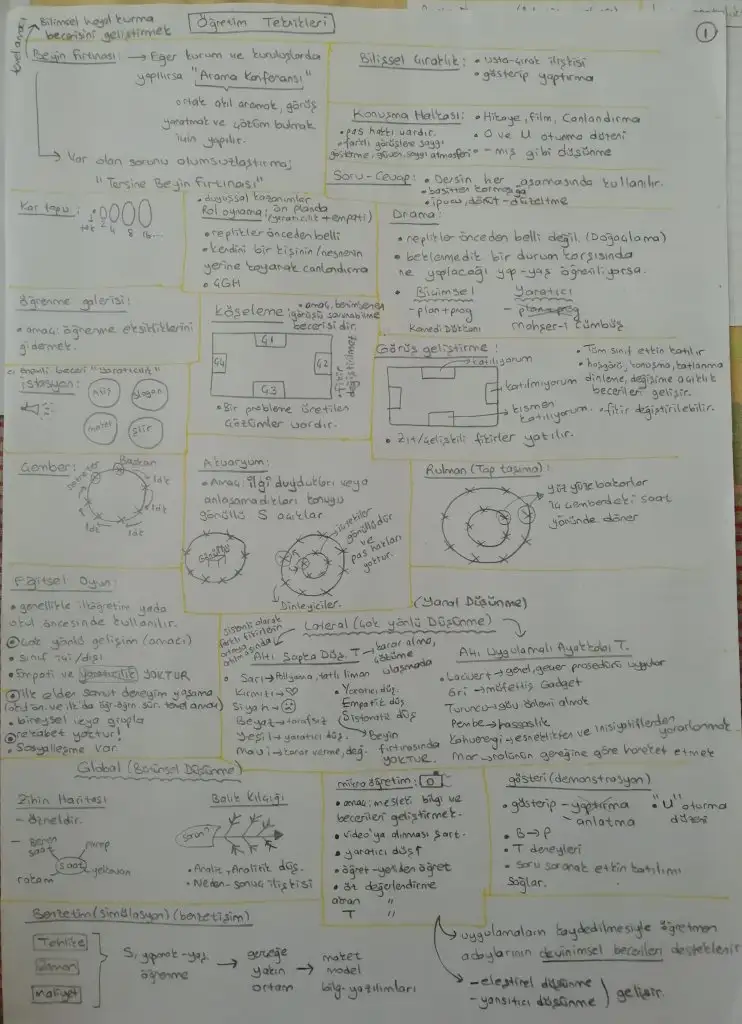 Öğretim Teknikleri
1
temel amacı
Bilimsel hayal kurma
becerisini geliştirmek
Beyin Fırtınası: → Eğer kurum ve kuruluşlarda
yapılırsa "Arama Konferansı"
ortak akıl aramak, görüş
yaratmak ve çözüm bulmak
için yapılır.
→ Var olan sorunu olumsuzlaştırma;
"Tersine Beyin Fırtınası"
Bilişsel Çıraklık: • usta-çırak ilişkisi
• gösterip yaptırma
Konuşma Halkası: • Hikaye, film, Canlandırma
• pas hakkı vardır.
• O ve U oturma düzeni
• farklı görüşlere saygı
gösterme, güven, saygı atmosferi
• -mış gibi düşünme
Soru-Cevap: • Dersin her aşamasında kullanılır.
• basitten karmaşığa
• ipucu, dönüt-düzeltme
Kar topu:
tek 2 4 8 16...
• duyuşsal kazanımlar
ön planda
Rol oynama: (yaratıcılık + empati)
• replikler önceden belli
• kendini bir kişinin/nesnenin
yerine koyarak canlandırma
• 4GH
Drama:
• replikler önceden belli değil. (Doğaçlama)
• beklenmedik bir durum karşısında
ne yapılacağı yap-yaş öğreniliyorsa.
• Biçimsel Yaratıcı
- plan+prog - plan+prog
Komedi Dükkanı Mahşer-i Cümbüş
Öğrenme galerisi:
• amaç: öğrenme eksikliklerini
gidermek.
Köşeleme: • amaç, benimsenen
görüşü savunabilme
becerisidir.
G1
G4 G2
G3
• fikir değiştirilemez
• Bir probleme üretilen
çözümler vardır.
Görüş geliştirme:
• Tüm sınıf etkin katılır
katılıyorum
• hoşgörü, konuşma, katlanma
dinleme, değişime açıklık
becerileri gelişir.
katılmıyorum
kısmen
katılıyorum
• fikir değiştirilebilir.
• Zıt/çelişkili fikirler yatılır.
• önemli beceri "yaratıcılık"
İstasyon:
Afiş
Slogan
maket
Şiir
Çember:
Sekreter
Başkan
1dk
1dk
1dk
1dk
Akvaryum:
• Amaç: ilgi duydukları veya
anlaşamadıkları konuyu
gönüllü S açıklar
Gönüllü
içtekiler
gönüllüdür
ve
pas hakları
yoktur.
Dinleyiciler.
Rulman (Top taşıma):
yüz yüze bakarlar
iç çemberdeki saat
yönünde döner
Eğitsel Oyun:
• genellikle ilköğretim yada
okul öncesinde kullanılır.
• Çok yönlü gelişim (amacı)
• sınıf içi/dışı
• Empati ve yaratıcılık YOKTUR
• İlk elden somut deneyim yaşama
• bireysel veya grupla
• rekabet yoktur!
• Sosyalleşme var.
(Yanal Düşünme)
Lateral (Çok yönlü Düşünme)
sistemli olarak
farklı fikirlerin
ortaya
atılmasında
Altı Şapka Düş. T → karar alma,
çözüme
ulaşmada
Sarı → Pollyanna, tatlı liman
Kırmızı →
Siyah →
Beyaz → tarafsız
Yeşil → yaratıcı düş.
Mavi → karar verme, değ.
• Yaratıcı düş
Empatik düş
Sistematik düş
Beyin
fırtınasında
YOKTUR.
Altı Uygulamalı Ayakkabı T.
• Lacivert → genel, geçer prosedürü uygular
Gri → müfettiş Gadget
Turuncu → güv. önlemi almak
Pembe → hassaslık
Kahverengi → esneklikten ve inisiyatiflerden yararlanmak
Mor → rolünün gereğine göre hareket etmek
Global (Bütünsel Düşünme)
Zihin Haritası
- özneldir.
Beren
saat
pürep
saat
rakam
yelkovan
Balık Kılçığı
Sorun
• Analiz, Analitik düş.
• Neden-sonuç ilişkisi
mikro öğretim:
• amaç: mesleki bilgi ve
becerileri geliştirmek.
• video'ya alınması şart.
• yaratıcı düş
• öğret-yeniden öğret
• öz değerlendirme
akran "
T "
gösteri (demonstrasyon)
• gösterip - yaptırma
- anlatma
• "U" oturma
düzeni
• B → P
• T deneyleri
• soru sorarak etkin katılımı
sağlar.
Benzetim (simülasyon) (benzeteşim)
Tehlike
Zaman
Maliyet
S, yapmak-yaş
öğrenme
→ gerçeğe
yakın
ortam
→ maket
model
bilg-yazılımları
→ uygulamaların kaydedilmesiyle öğretmen
adaylarının devinimsel becerileri desteklenir
- eleştirel düşünme
- yansıtıcı düşünme
gelişir.